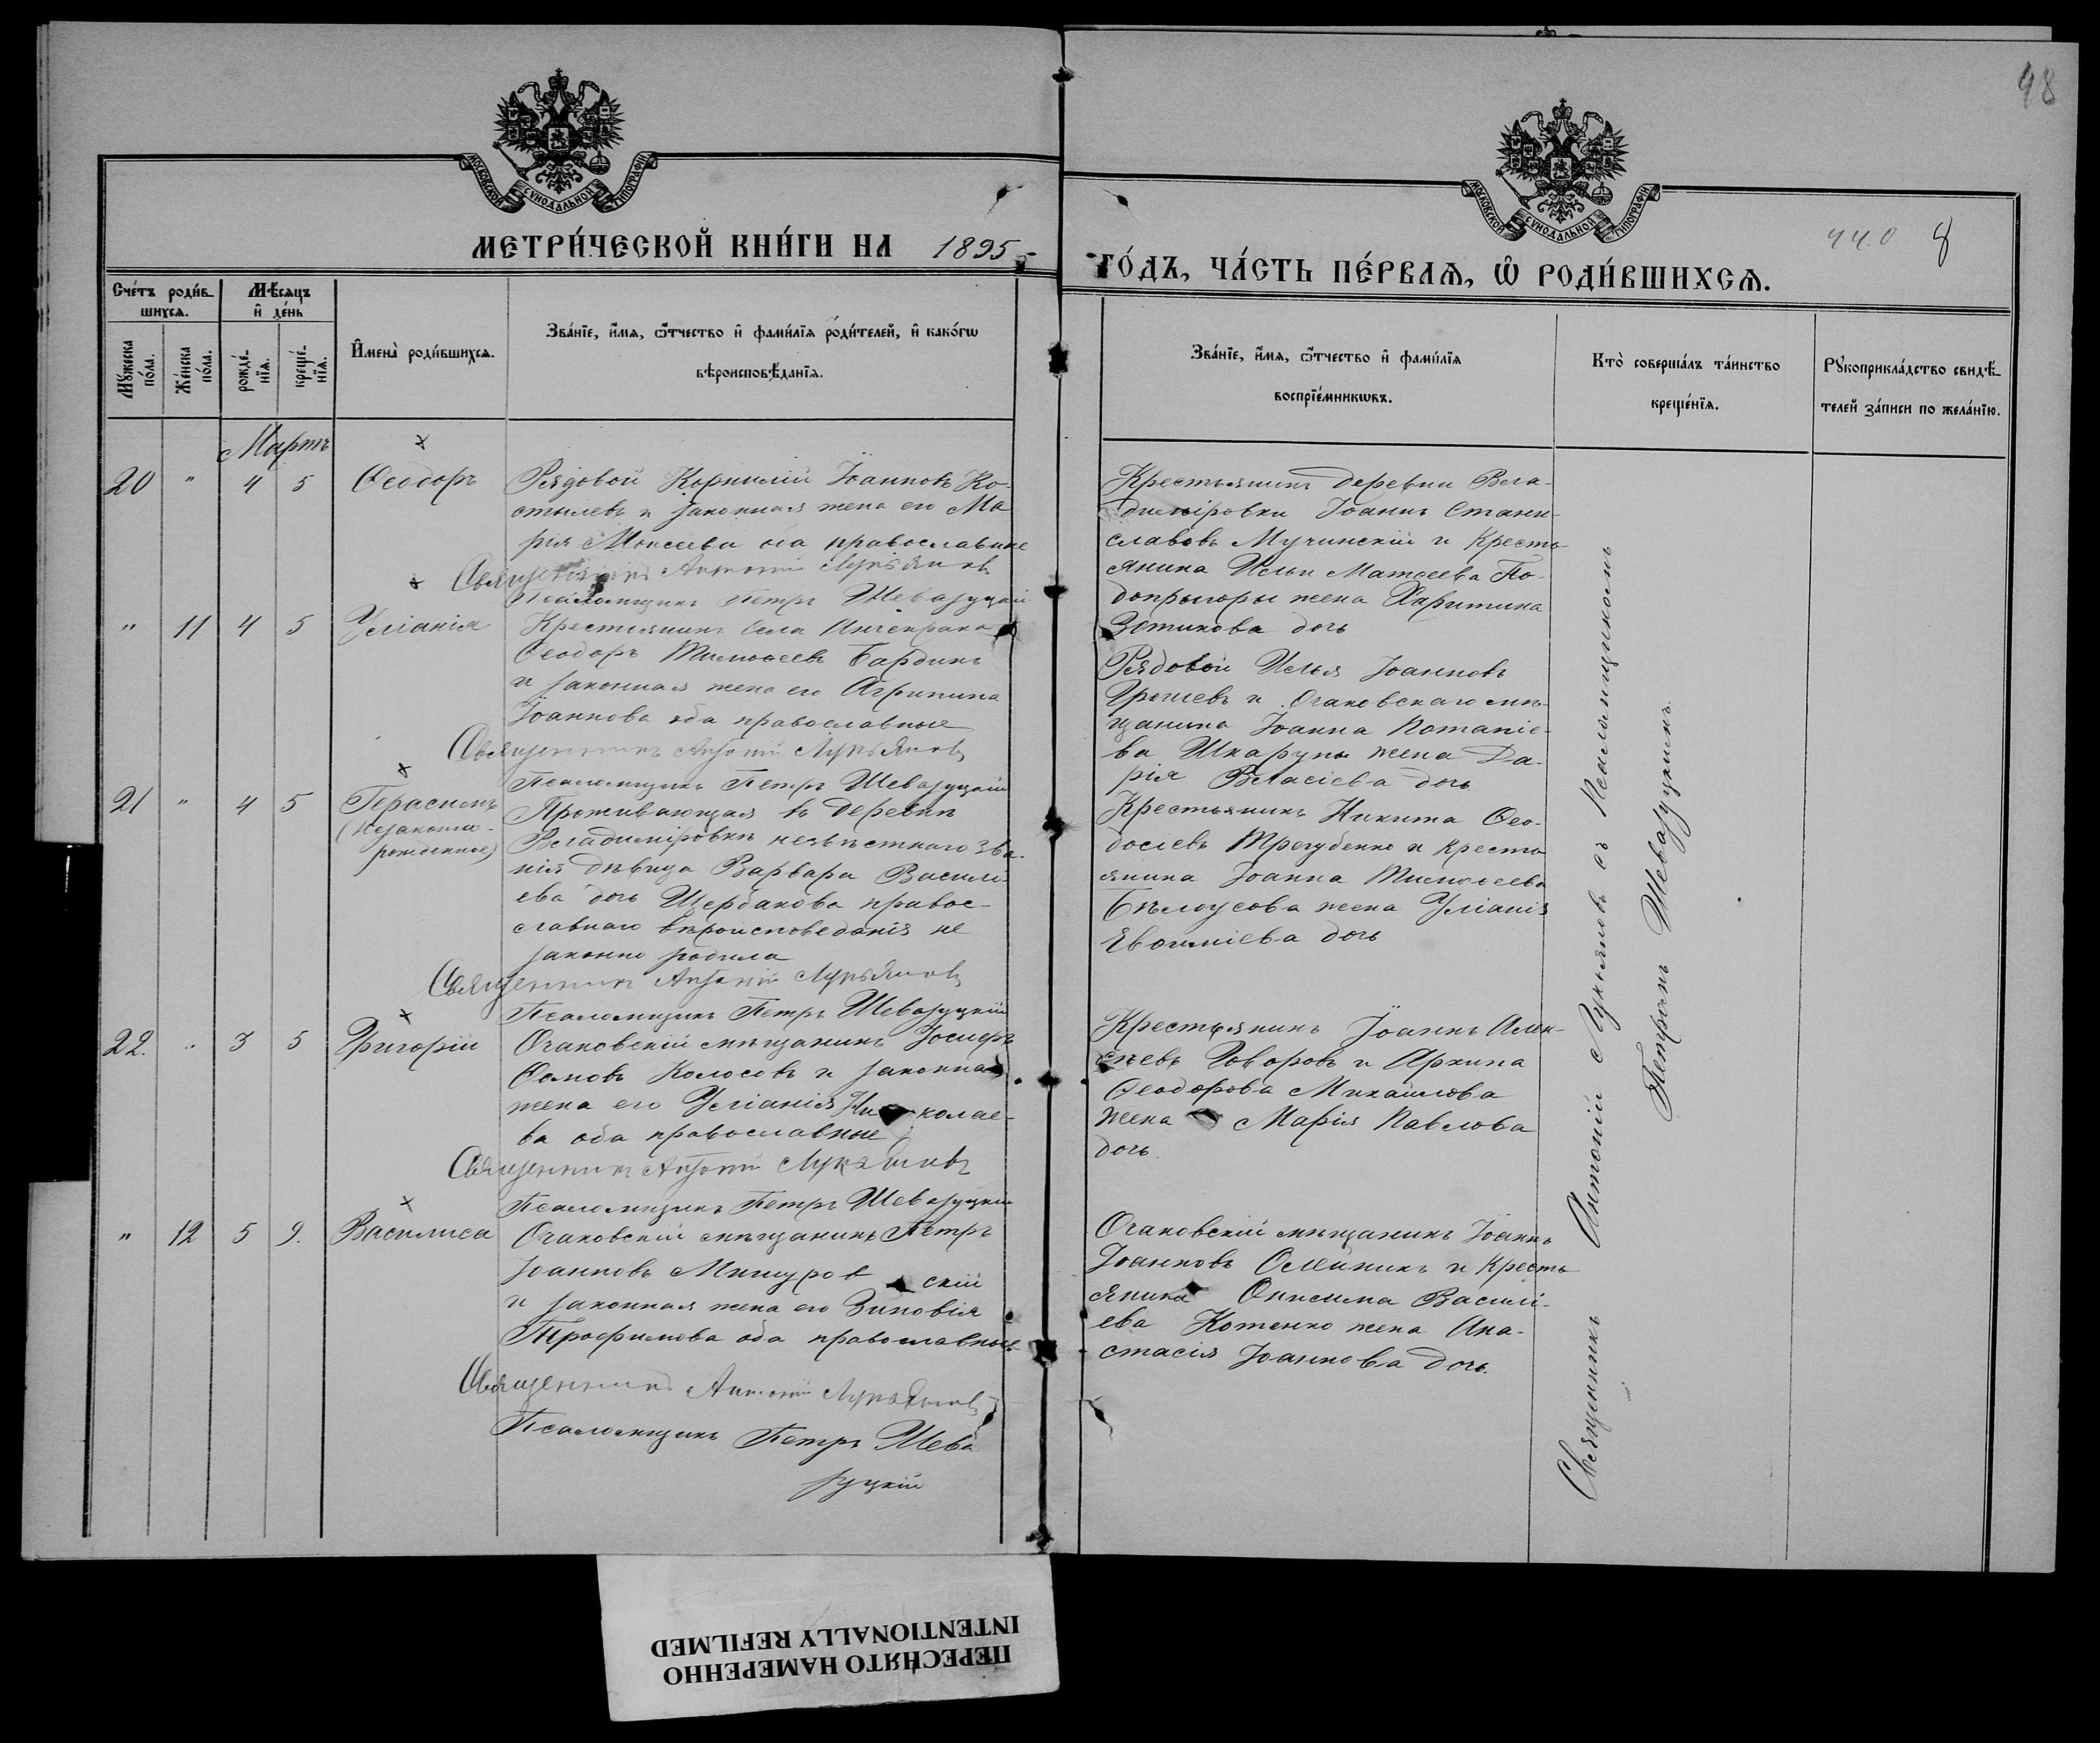 98
МОСКОВСКОЙ СУНОДАЛЬНОЙ ТИПОГРАФІИ
МОСКОВСКОЙ СУНОДАЛЬНОЙ ТИПОГРАФІИ
МЕТРИ́ЧЕСКОЙ КНИ́ГИ НА 1895
ГО́ДЪ, ЧА́СТЬ ПЕ́РВАѦ, Ѡ҆ РОДИ́ВШИХСѦ.
440 8
Сче́тъ роди́в-
шихсѧ.
Мѣ́сѧцъ
и҆ де́нь
Мꙋжеска по́ла.
Же́нска по́ла.
рожде́-
нїѧ.
креще́-
нїѧ.
И҆мена̀ роди́вшихсѧ.
Зва́нїе, и҆́мѧ, ѻ҆́тчество и҆ фами́лїѧ роди́телей, и҆ како́гѡ
вѣроисповѣ́данїѧ.
Зва́нїе, и҆́мѧ, ѻ҆́тчество и҆ фами́лїѧ
воспрїе́мникѡвъ.
Кто̀ соверша́лъ та́инство
креще́нїѧ.
Рꙋкоприкла́дство свидѣ́-
телей за́писи по жела́нїю.
Мартъ
20 " 4 5 Ѳеодоръ
Рядовой Корнилій Іоанновъ Ко-
стылевъ и законная жена его Ма
рія Моисеева оба православные
Священникъ Антоній Лукьяновъ
Псаломщикъ Петръ Шевазуцкій
Крестьянинъ деревни Вла-
диміровки Іоаннъ Стани-
славовъ Мучинскій и Кресть
янина Ильи Матѳеева По-
допрыгоры жена Харитина
Зотикова дочь
" 11 4 5 Уліанія
Крестьянинъ села Ингекрака
Ѳеодоръ Тимоѳеевъ Бардинъ
и законная жена его Агрипина
Іоаннова оба православные
Священникъ Антоній Лукьяновъ
Псаломщикъ Петръ Шевазуцкій
Рядовой Илья Іоанновъ
Грошевъ и Очаковскаго мѣ-
щанина Іоанна Потапіе-
ва Шкарупы жена Да-
рія Власіева дочь
21 " 4 5 Герасимъ
(Незаконно-
рожденное)
Проживающая въ деревнѣ
Владиміровкѣ неизвѣстнаго зва-
нія дѣвица Варвара Василі-
ева дочь Щербакова правос-
славнаго вѣроисповеданія не
законно родила
Священникъ Антоній Лукьяновъ
Псаломщикъ Петръ Шевазуцкій
Крестьянинъ Никита Ѳео-
досіевъ Трегубенко и кресть
янина Іоанна Тимоѳеева
Бѣлоусова жена Уліанія
Евѳиміева дочь
22. " 3 5 Григорій
Очаковскій мѣщанинъ Іосифъ
Ѳомовъ Колосовъ и законная
жена его Уліанія Николае-
ва оба православные
Священникъ Антоній Лукьяновъ
Псаломщикъ Петръ Шевазуцкій
Крестьянинъ Іоаннъ Алек-
сѣевъ Говоровъ и Архипа
Ѳеодорова Михайлова
жена Марія Павлова
дочь.
" 12 5 9. Василиса
Очаковскій мѣщанинъ Петръ
Іоанновъ Мишуровскій
и законная жена его Зиновія
Трофимова оба православные
Священникъ Антоній Лукьяновъ
Псаломщикъ Петръ Шева
зуцкій
Очаковскій мѣщанинъ Іоаннъ
Іоанновъ Олейникъ и Кресть
янина Онисима Василі-
ева Котенко жена Ана-
стасія Іоаннова дочь.
Священникъ Антоній Лукьяновъ съ Псаломщикомъ
Петромъ Шевазуцкимъ.
ПЕРЕСНЯТО НАМЕРЕННО
INTENTIONALLY REFILMED